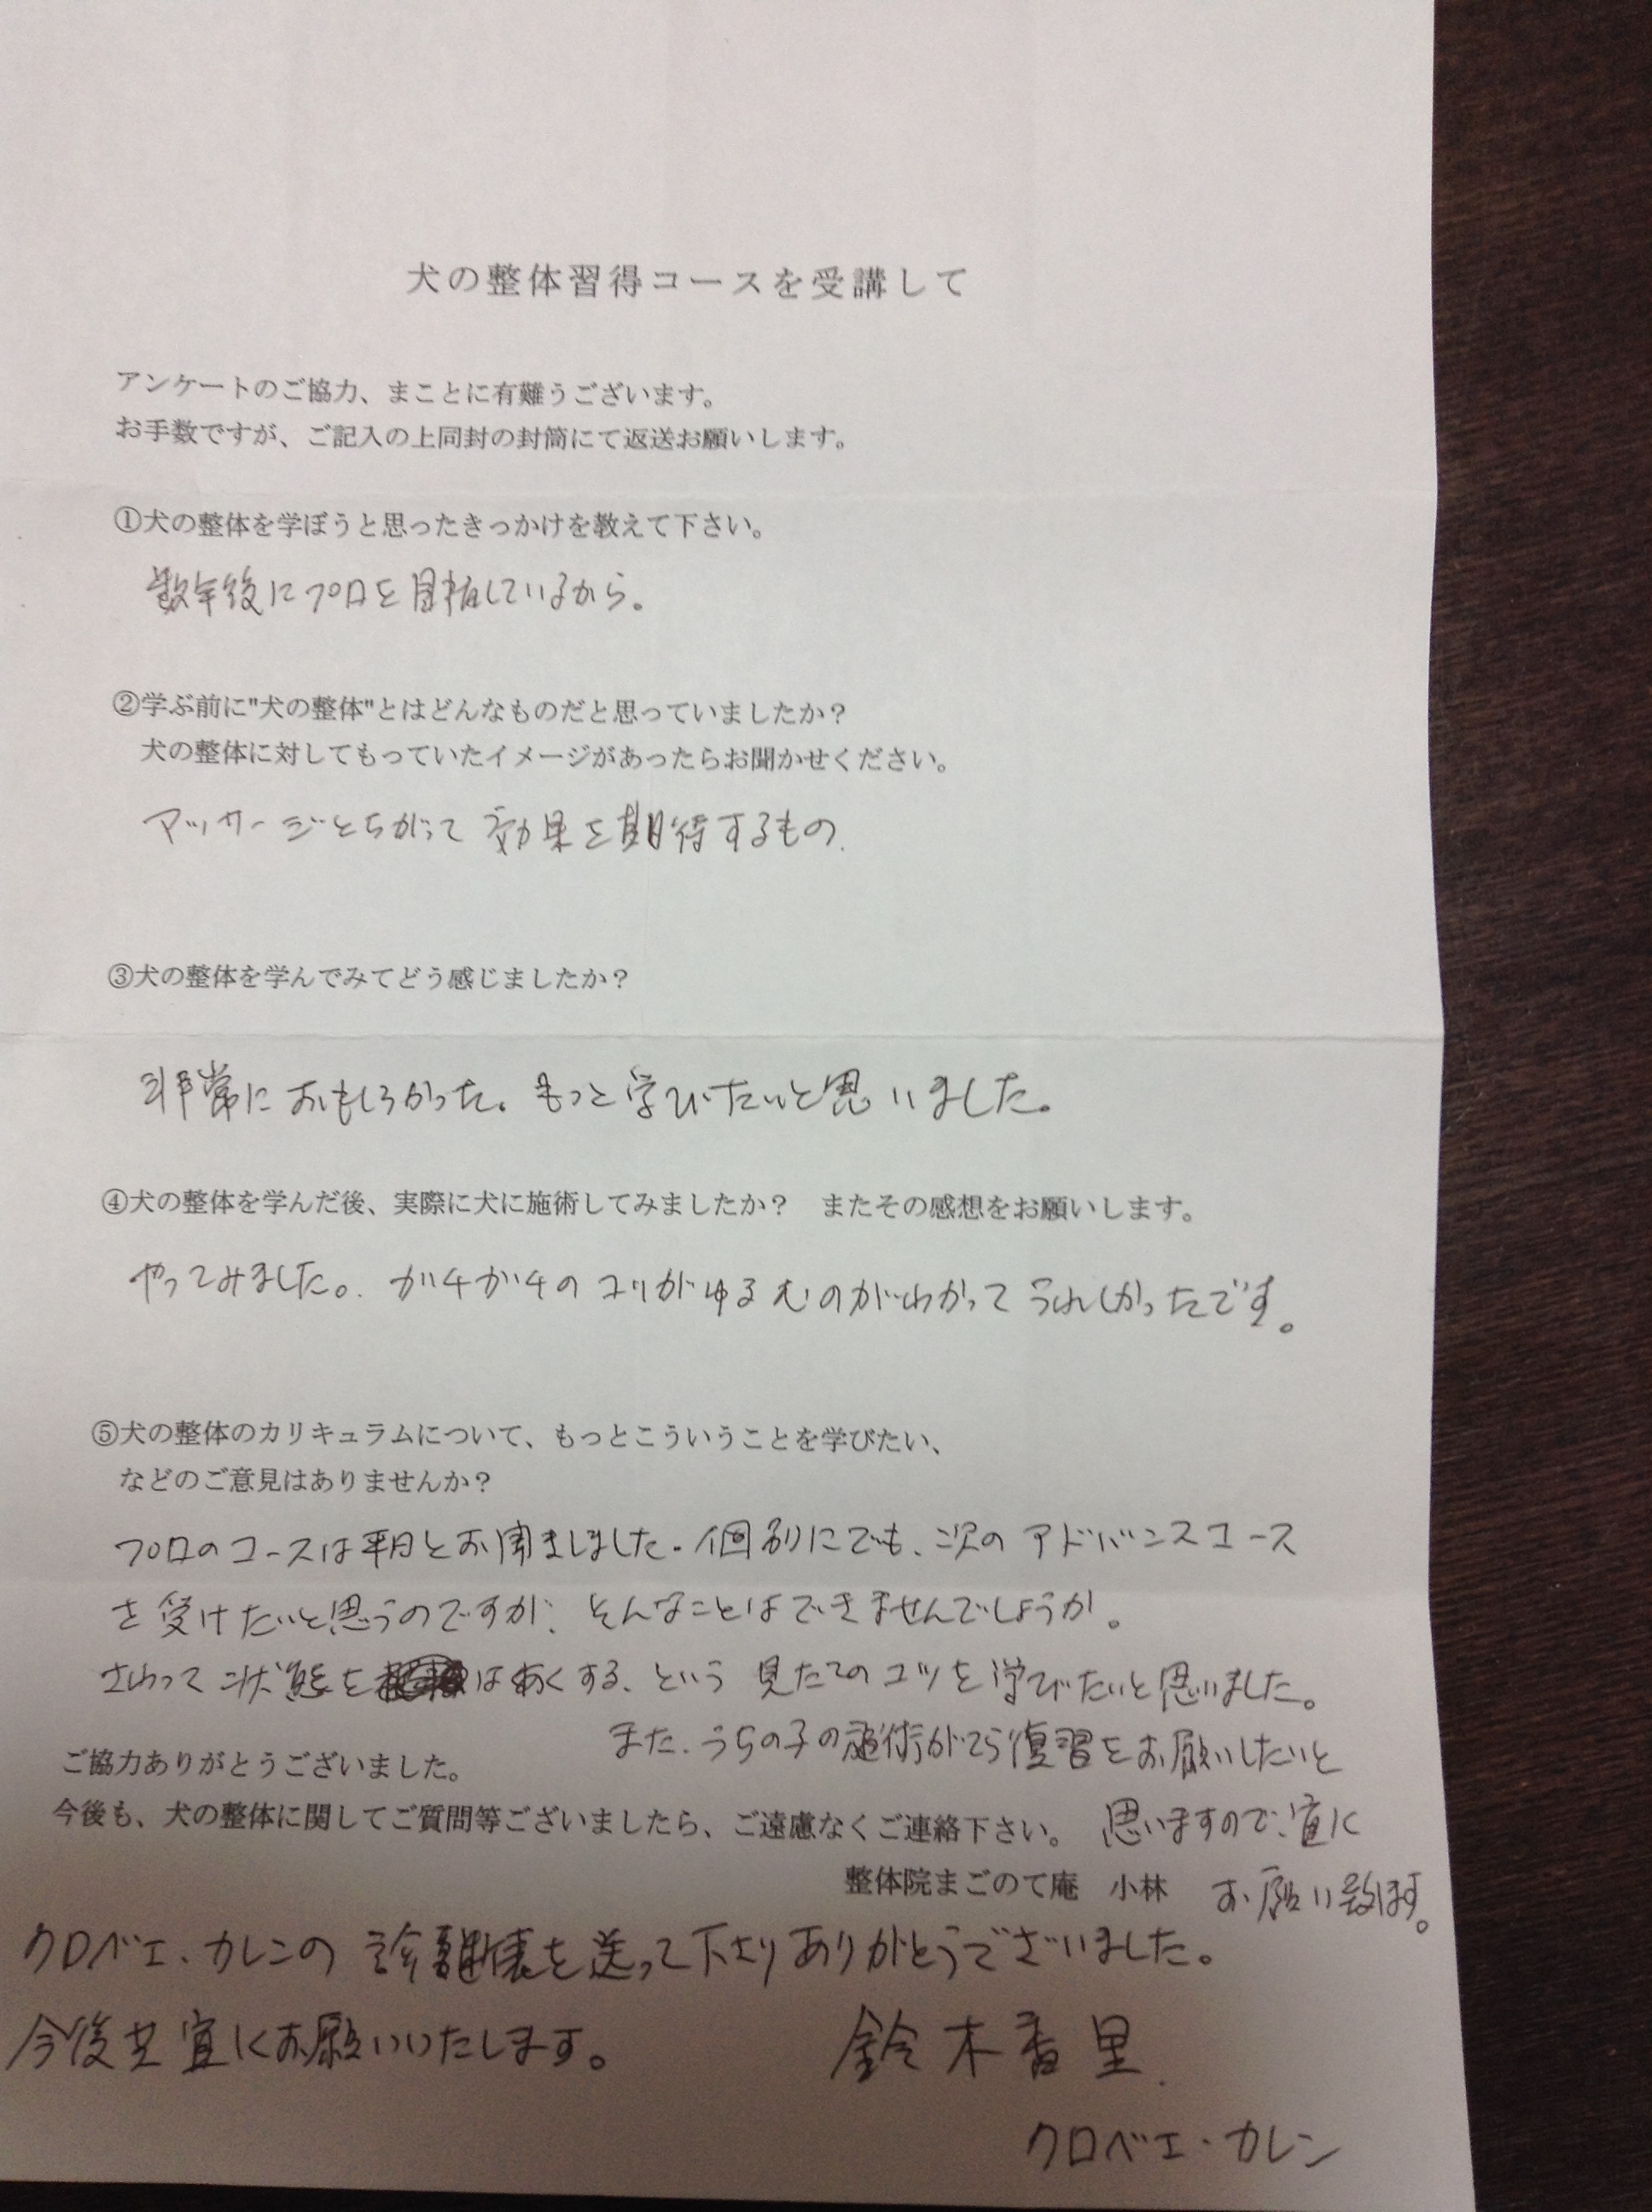 犬の整体習得コースを受講して
アンケートのご協力、まことに有難うございます。
お手数ですが、ご記入の上同封の封筒にて返送お願いします。
①犬の整体を学ぼうと思ったきっかけを教えて下さい。
数年後にプロを目指しているから。
②学ぶ前に"犬の整体"とはどんなものだと思っていましたか？
犬の整体に対してもっていたイメージがあったらお聞かせください。
マッサージとちがって効果を期待するもの.
③犬の整体を学んでみてどう感じましたか？
非常におもしろかった。もっと学びたいと思いました。
④犬の整体を学んだ後、実際に犬に施術してみましたか？　またその感想をお願いします。
やってみました。ガチガチのコリがゆるむのがわかってうれしかったです。
⑤犬の整体のカリキュラムについて、もっとこういうことを学びたい、
などのご意見はありませんか？
プロのコースは平日とお聞きしました。個別にでも、次のアドバンスコース
を受けたいと思うのですが、そんなことはできませんでしょうか。
さわって状態をはあくする、という見たてのコツを学びたいと思いました。
また、うちの子の施術がてら復習をお願いしたいと
ご協力ありがとうございました。
今後も、犬の整体に関してご質問等ございましたら、ご遠慮なくご連絡下さい。
思いますので、宜しく
整体院まごのて庵　小林
お願い致します。
クロベエ・カレンの を送って下さりありがとうございました。
今後共宜しくお願いいたします。
鈴木香里.
クロベエ・カレン